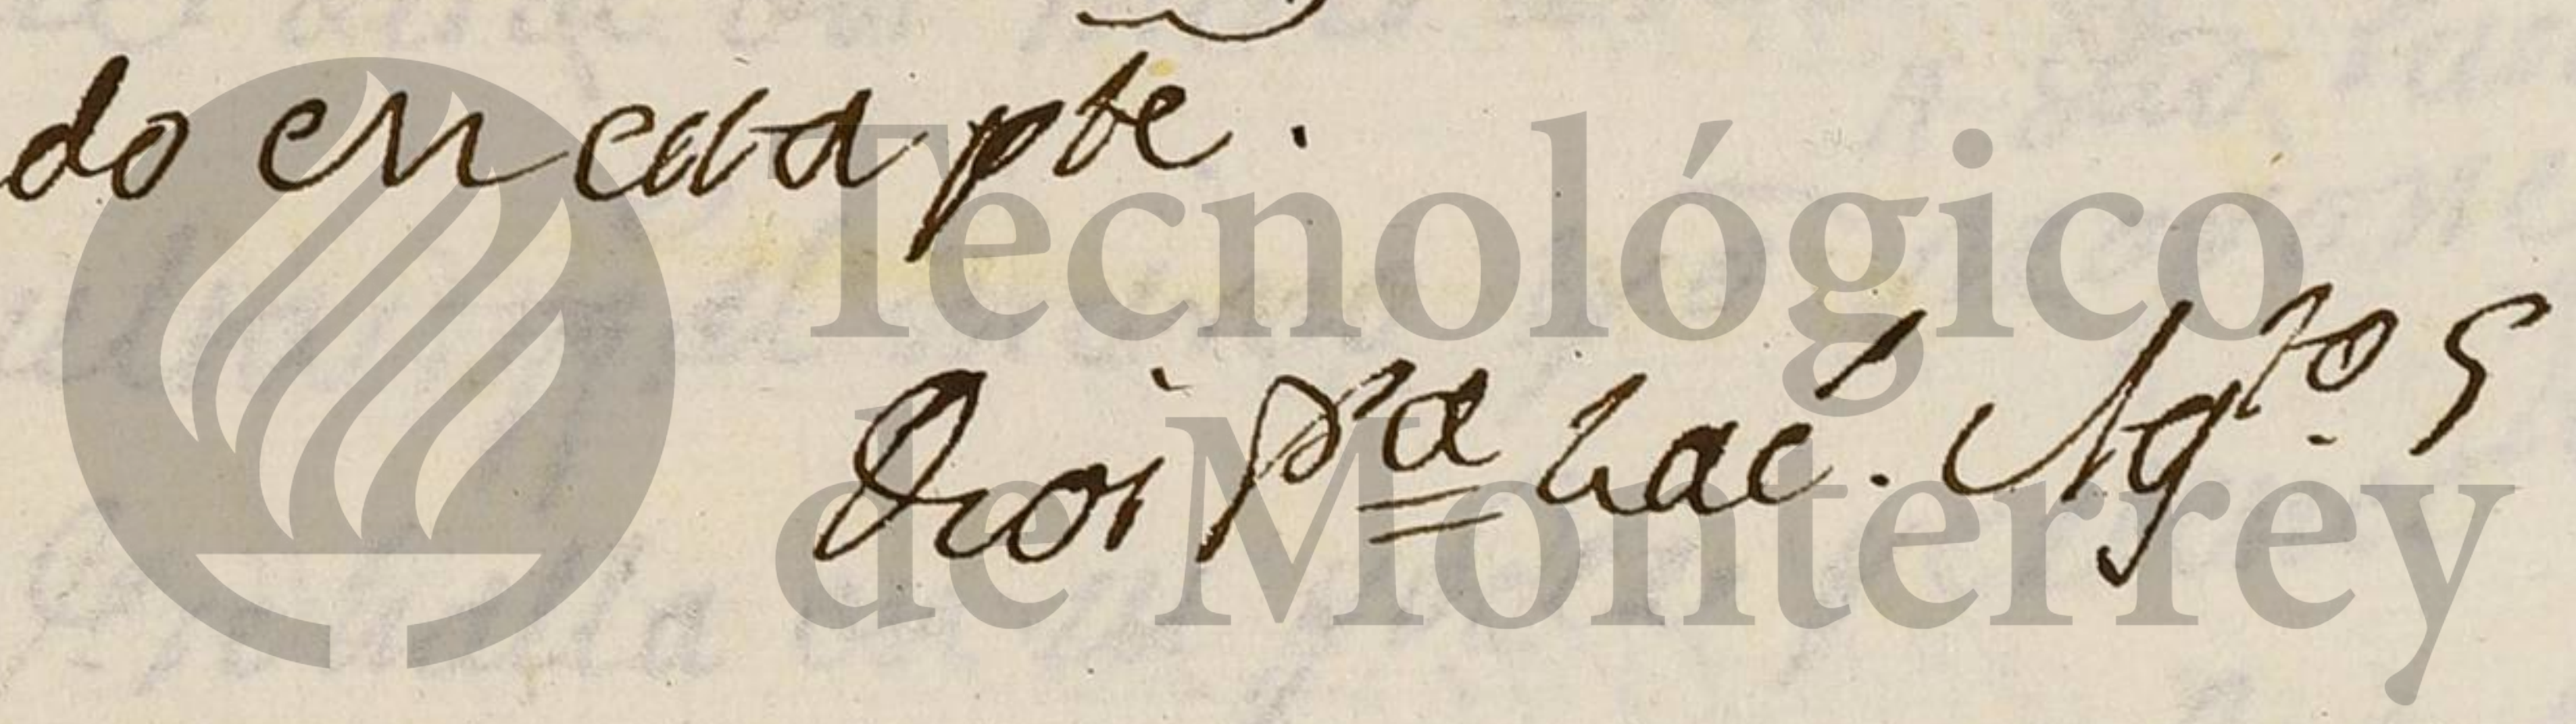 do en esta pte.
Dios Pa Zac. Agto 5
Tecnológico
de Monterrey